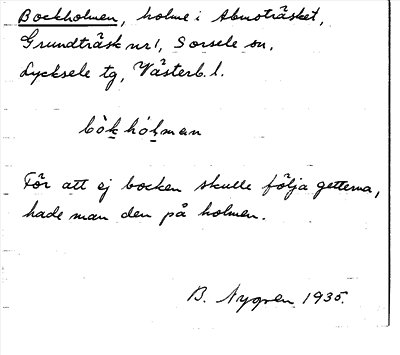 Bockholmen, holme i Abmoträsket,
Grundträsk nr 1, Sorsele sn,
Lycksele tg, Västerb. l.
bòk̬ hól̬man
För att ej bocken skulle följa getterna,
hade man den på holmen.
B. Nygren 1935.